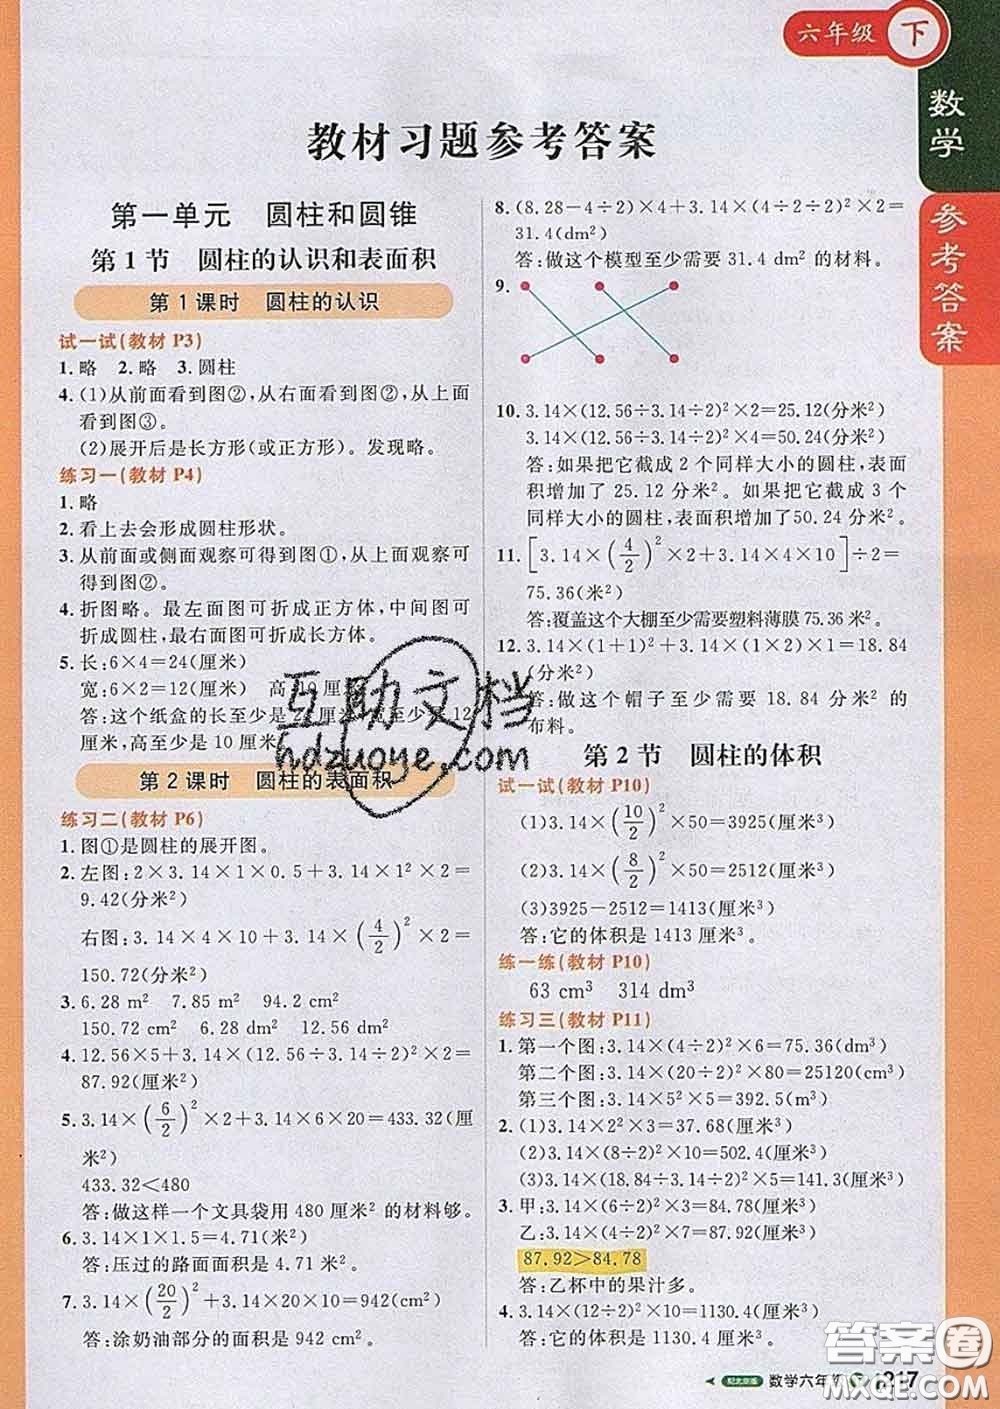 六年级 下
数学
参考答案
教材习题参考答案
第一单元 圆柱和圆锥
第1节 圆柱的认识和表面积
第1课时 圆柱的认识
试一试(教材 P3)
1.略 2.略 3.圆柱
4.(1)从前面看到图②,从右面看到图②,从上面
看到图③。
(2)展开后是长方形(或正方形)。发现略。
练习一(教材 P4)
1.略
2.看上去会形成圆柱形状。
3.从前面或侧面观察可得到图①,从上面观察可
得到图②。
4.折图略。最左面图可折成正方体,中间图可
折成圆柱,最右面图可折成长方体。
5.长:6×4=24(厘米)
宽:6×2=12(厘米) 高:10厘米
答:这个纸盒的长至少是24厘米,宽至少是12
厘米,高至少是10厘米。
第2课时 圆柱的表面积
练习二(教材 P6)
1.图①是圆柱的展开图。
2.左图:2×3.14×1×0.5+3.14×1²×2=
9.42(分米²)
右图:3.14×4×10+3.14×(4/2)²×2=
150.72(分米²)
3.6.28 m² 7.85 m² 9.42 m²
150.72 cm² 6.28 dm² 12.56 m²
4.12.56×5+3.14×(12.56÷3.14÷2)²×2=
87.92(厘米²)
5.3.14×(6/2)²×2+3.14×6×20=433.32(厘
米²)
433.32<480
答:做这样一个文具袋用480厘米²的材料够。
6.3.14×1×1.5=4.71(米²)
答:压过的路面面积是4.71米²。
7.3.14×(20/2)²+3.14×20×10=942(cm²)
答:涂奶油部分的面积是942 cm²。
8.(8.28-4÷2)×4+3.14×(4÷2÷2)²×2=
31.4(dm²)
答:做这个模型至少需要31.4 dm²的材料。
9.
10.3.14×(12.56÷3.14÷2)²×2=25.12(分米²)
3.14×(12.56÷3.14÷2)²×4=50.24(分米²)
答:如果把它截成2个同样大小的圆柱,表面
积增加了25.12分米²。如果把它截成3个
同样大小的圆柱,表面积增加了50.24分米²。
11.[3.14×(4/2)²×2+3.14×4×10]÷2=
75.36(米²)
答:覆盖这个大棚至少需要塑料薄膜75.36米²。
12.3.14×(1+1)²+3.14×(1×2)×1=18.84
(分米²)
答:做这个帽子至少需要18.84分米²的
布料。
第2节 圆柱的体积
试一试(教材 P10)
(1)3.14×(10/2)²×50=3925(厘米³)
(2)3.14×(8/2)²×50=2512(厘米³)
(3)3925-2512=1413(厘米³)
答:它的体积是1413厘米³。
练一练(教材 P10)
63 cm³ 314 dm³
练习三(教材 P11)
1.第一个图:3.14×(4÷2)²×6=75.36(dm³)
第二个图:3.14×(20÷2)²×80=25120(cm³)
第三个图:3.14×5²×5=392.5(m³)
2.(1)3.14×2²×3=37.68(厘米³)
(2)3.14×(8÷2)²×10=502.4(厘米³)
(3)3.14×(12.56÷3.14÷2)²×5=62.8(厘米³)
3.甲:3.14×(6÷2)²×3=84.78(厘米³)
乙:3.14×(4÷2)²×7=87.92(厘米³)
87.92>84.78
答:乙杯中的果汁多。
4.3.14×(12÷2)²×10=1130.4(厘米³)
答:它的体积是1130.4厘米³。
数学六年级
互助文档
hdzuoye.com
答案圈
MXQE.COM